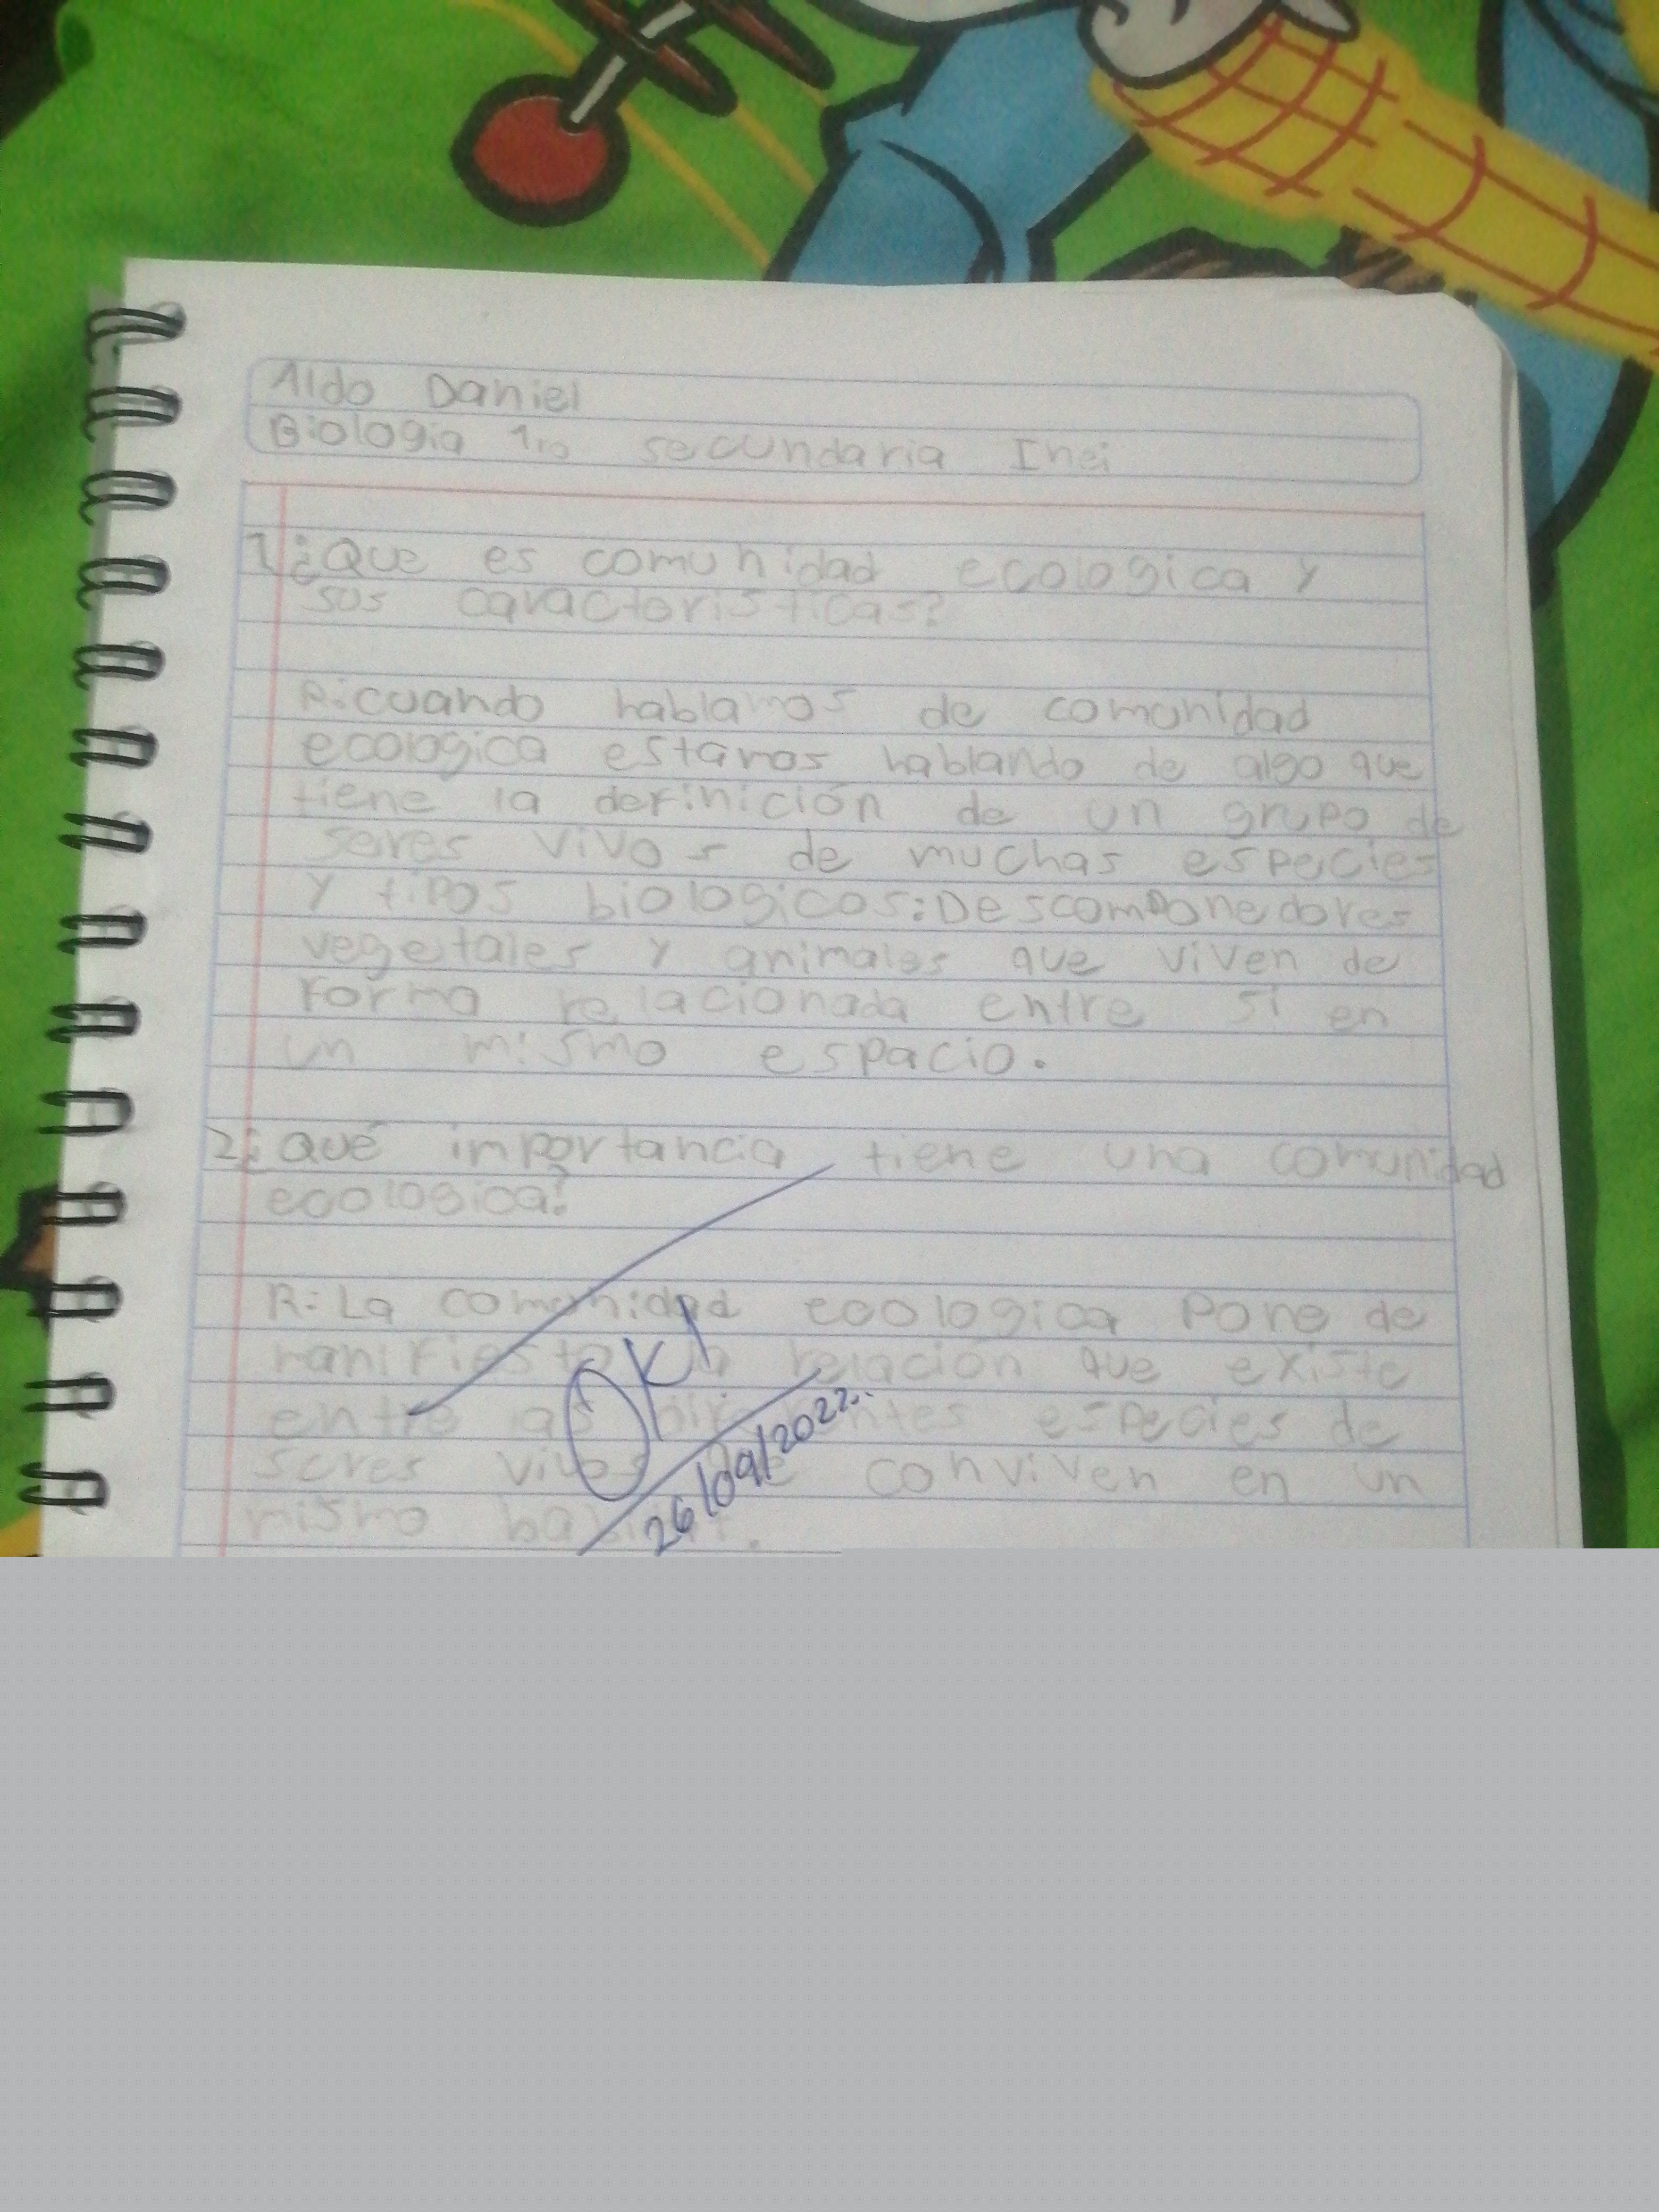 Aldo Daniel
Biologia 1ro secundaria Inei
1¿Que es comunidad ecologica y
sus caracteristicas?
R:cuando hablamos de comunidad
ecologica estamos hablando de algo que
tiene la definición de un grupo de
seres vivos de muchas especies
Y tipos biologicos:Descomponedores
vegetales y animales que viven de
Forma relacionada entre sí en
un mismo espacio.
2¿Qué importancia tiene una comunidad
ecologica?
R:La comunidad ecologica Pone de
manifiesto la relación que existe
entre as diferentes especies de
seres vivos que conviven en un
mismo habitat.
OK!
26/09/2022.